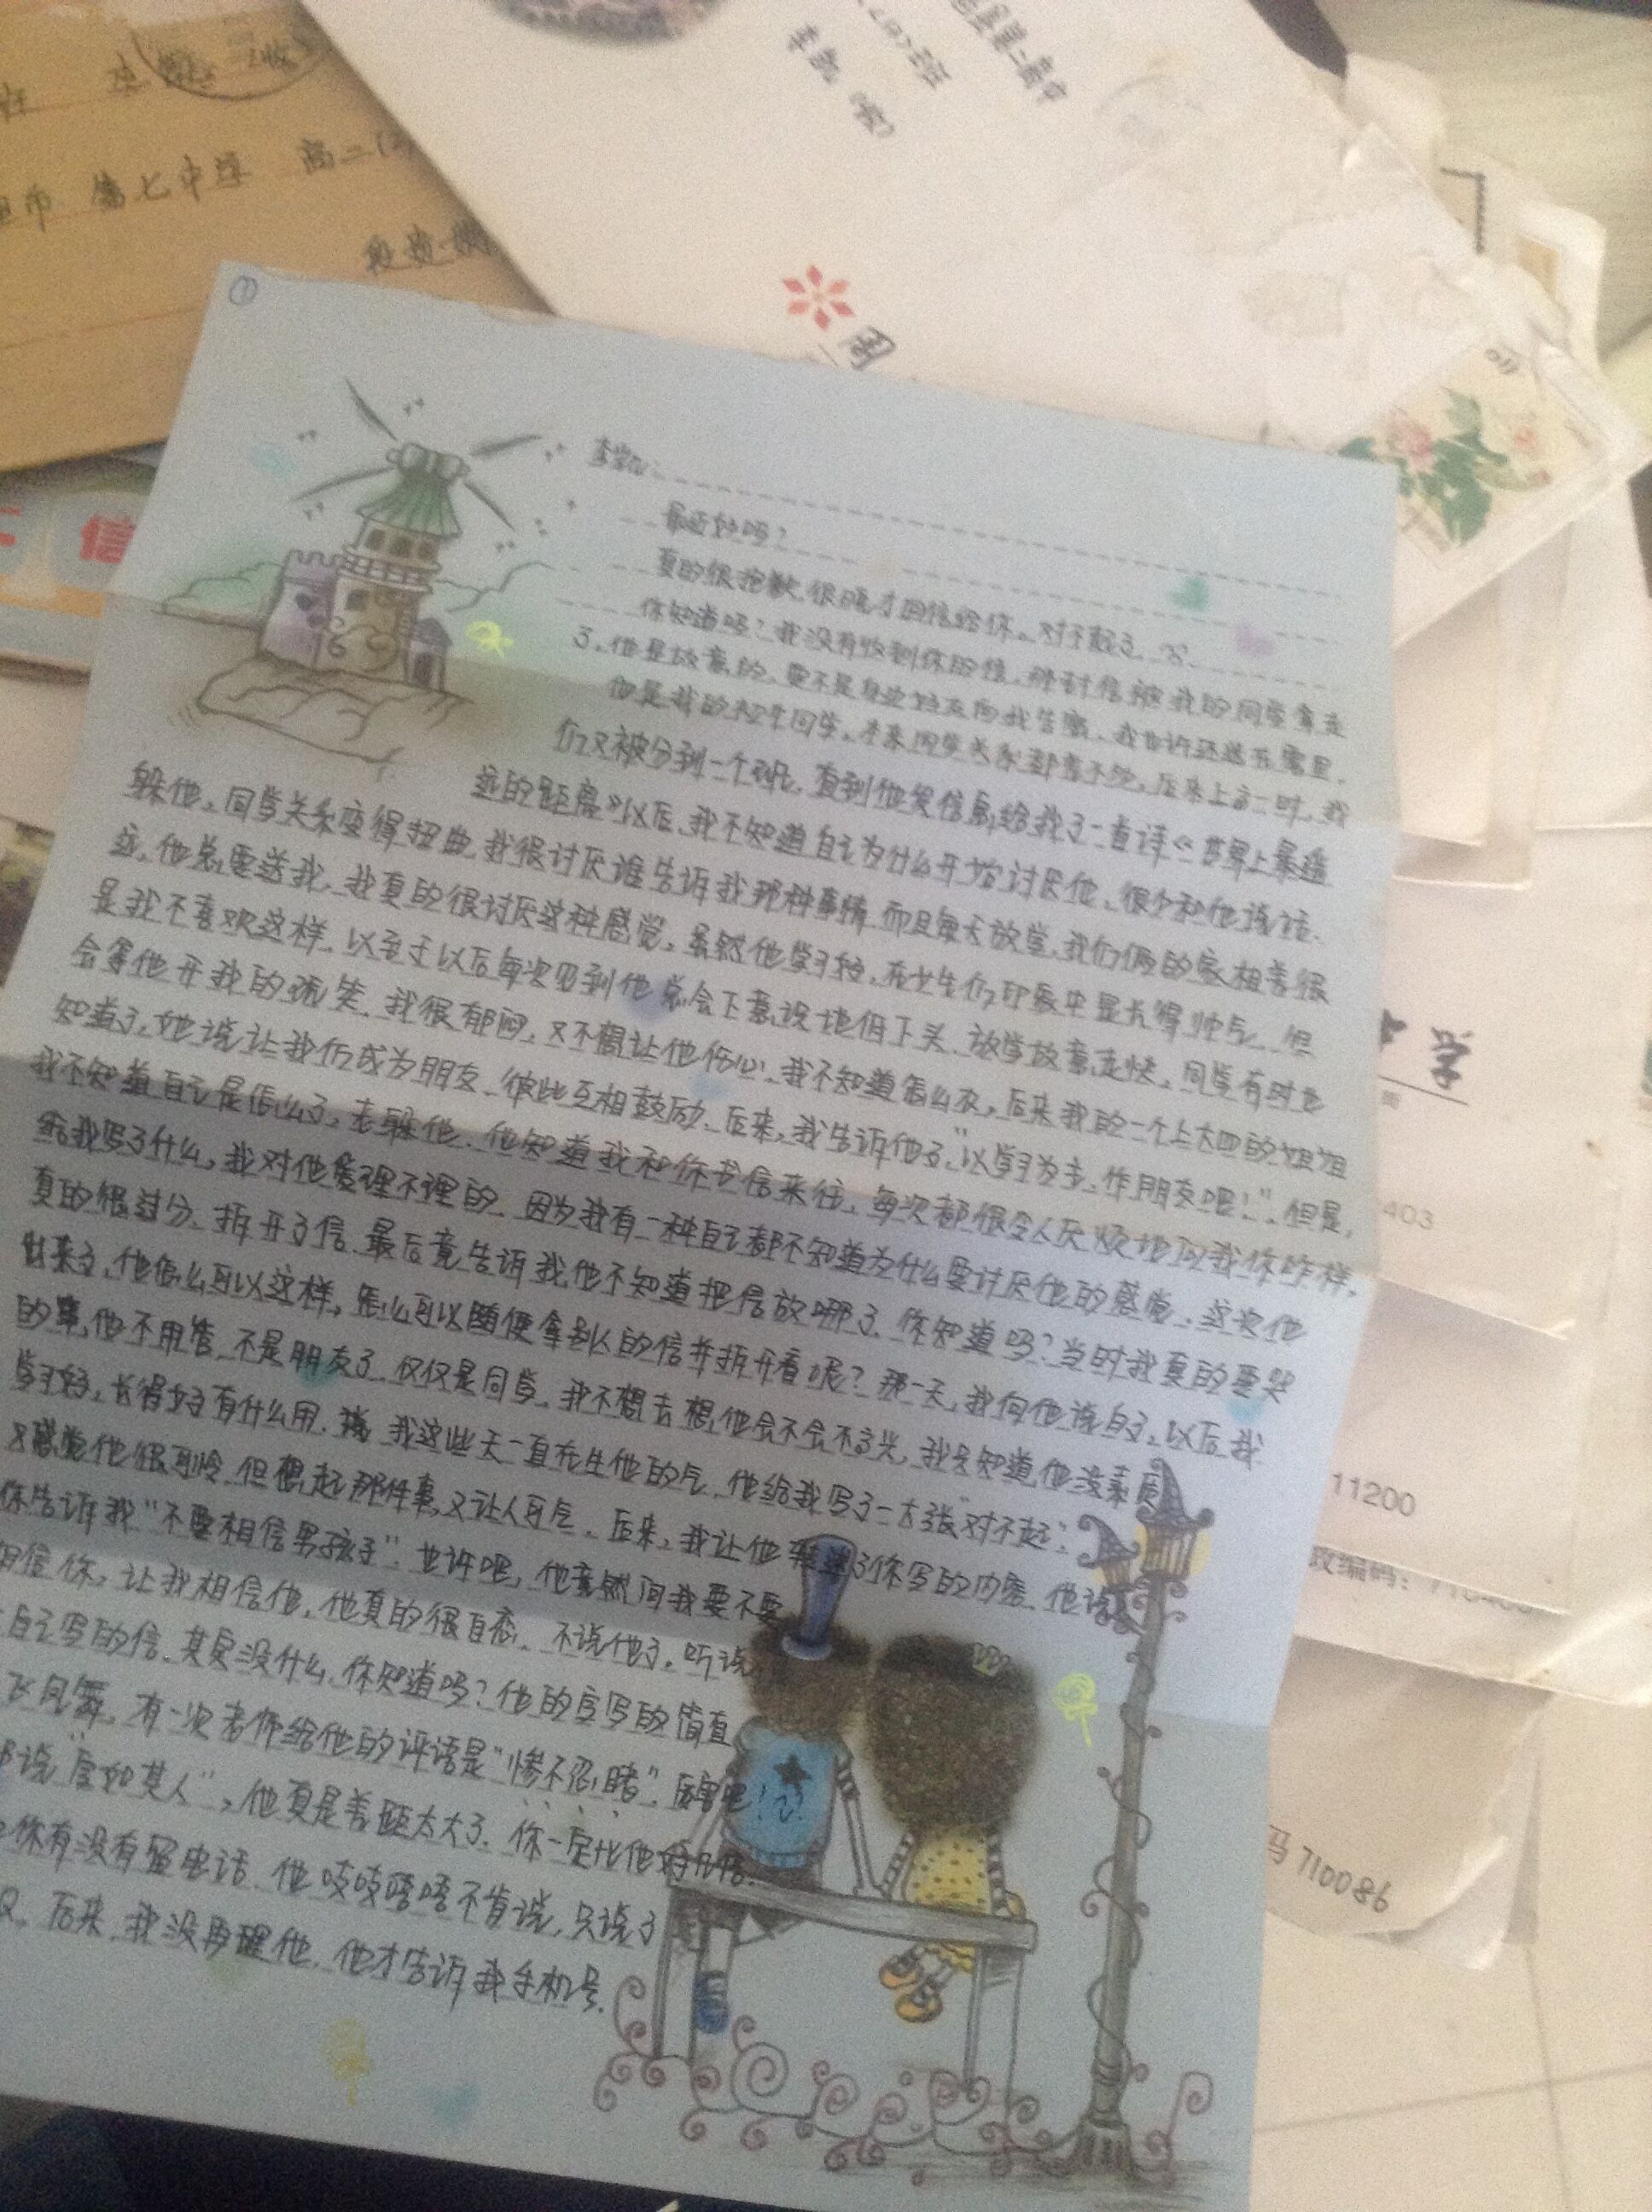 第七中学 高二
信
①
最近好吗?
真的很抱歉,很晚才回信给你。对不起了
你知道吗?我没有收到你的信,那封信被我的同学拿走
了。他是故意的,要不是身边的友向我告密,我也许还迷在雾里。
他是我的初中同学。本来同学关系都蛮不错,后来上高一时,我
们又被分到一个班,直到他发信息给我了一首诗《世界上最遥
远的距离》以后,我不知道自己为什么开始讨厌他、很少和他说话、
躲他。同学关系变得扭曲。我很讨厌谁告诉我那种事情。而且每天放学,我们俩的家相差很
远,他总要送我,我真的很讨厌这种感觉。虽然他学习好,在女生们印象中显长得帅气,但
是我不喜欢这样,以至于以后每次见到他总会下意识地低下头,放学故意走快。同学有时也
会拿他开我的玩笑。我很郁闷,又不想让他伤心。我不知道怎么办。后来我的一个上大四的姐姐
知道了,她说让我们成为朋友,彼此互相鼓励。后来,我告诉他了“以学习为主,作朋友吧!”。但是,
我不知道自己是怎么了,去躲他。他知道我和你书信来往,每次都很令人厌烦地问我你咋样,
给我写了什么,我对他爱理不理的。因为我有一种自己都不知道为什么要讨厌他的感觉。这次他
真的很过分,拆开了信,最后竟告诉我,他不知道把信放哪了。你知道吗?当时我真的要哭
出来了,他怎么可以这样,怎么可以随便拿别人的信并拆开看呢?那一天,我向他说白了,以后我
的事,他不用管,不是朋友了,仅仅是同学。我不想去想他会不会不高兴,我只知道,他没素质
学习好,长得好有什么用。我这些天一直在生他的气。他给我写了一大张“对不起”,
又感觉他很可怜,但想起那件事,又让人可气。后来,我让他 了你写的内容。他说
你告诉我“不要相信男孩子”。也许吧,他竟然问我要不要
相信你,让我相信他,他真的很自恋。不说他了。听说
自己写的信。其实没什么,你知道吗?他的字写的简直
飞凤舞。有一次老师给他的评语是“惨不忍睹”。厉害吧!
说“字如其人”,他真是差距太大了。你一定比他好几倍。
你有没有留电话,他吱吱唔唔不肯说,只说了
Q。后来,我没再理他,他才告诉我手机号。
学
403
11200
政编码:
码 710086